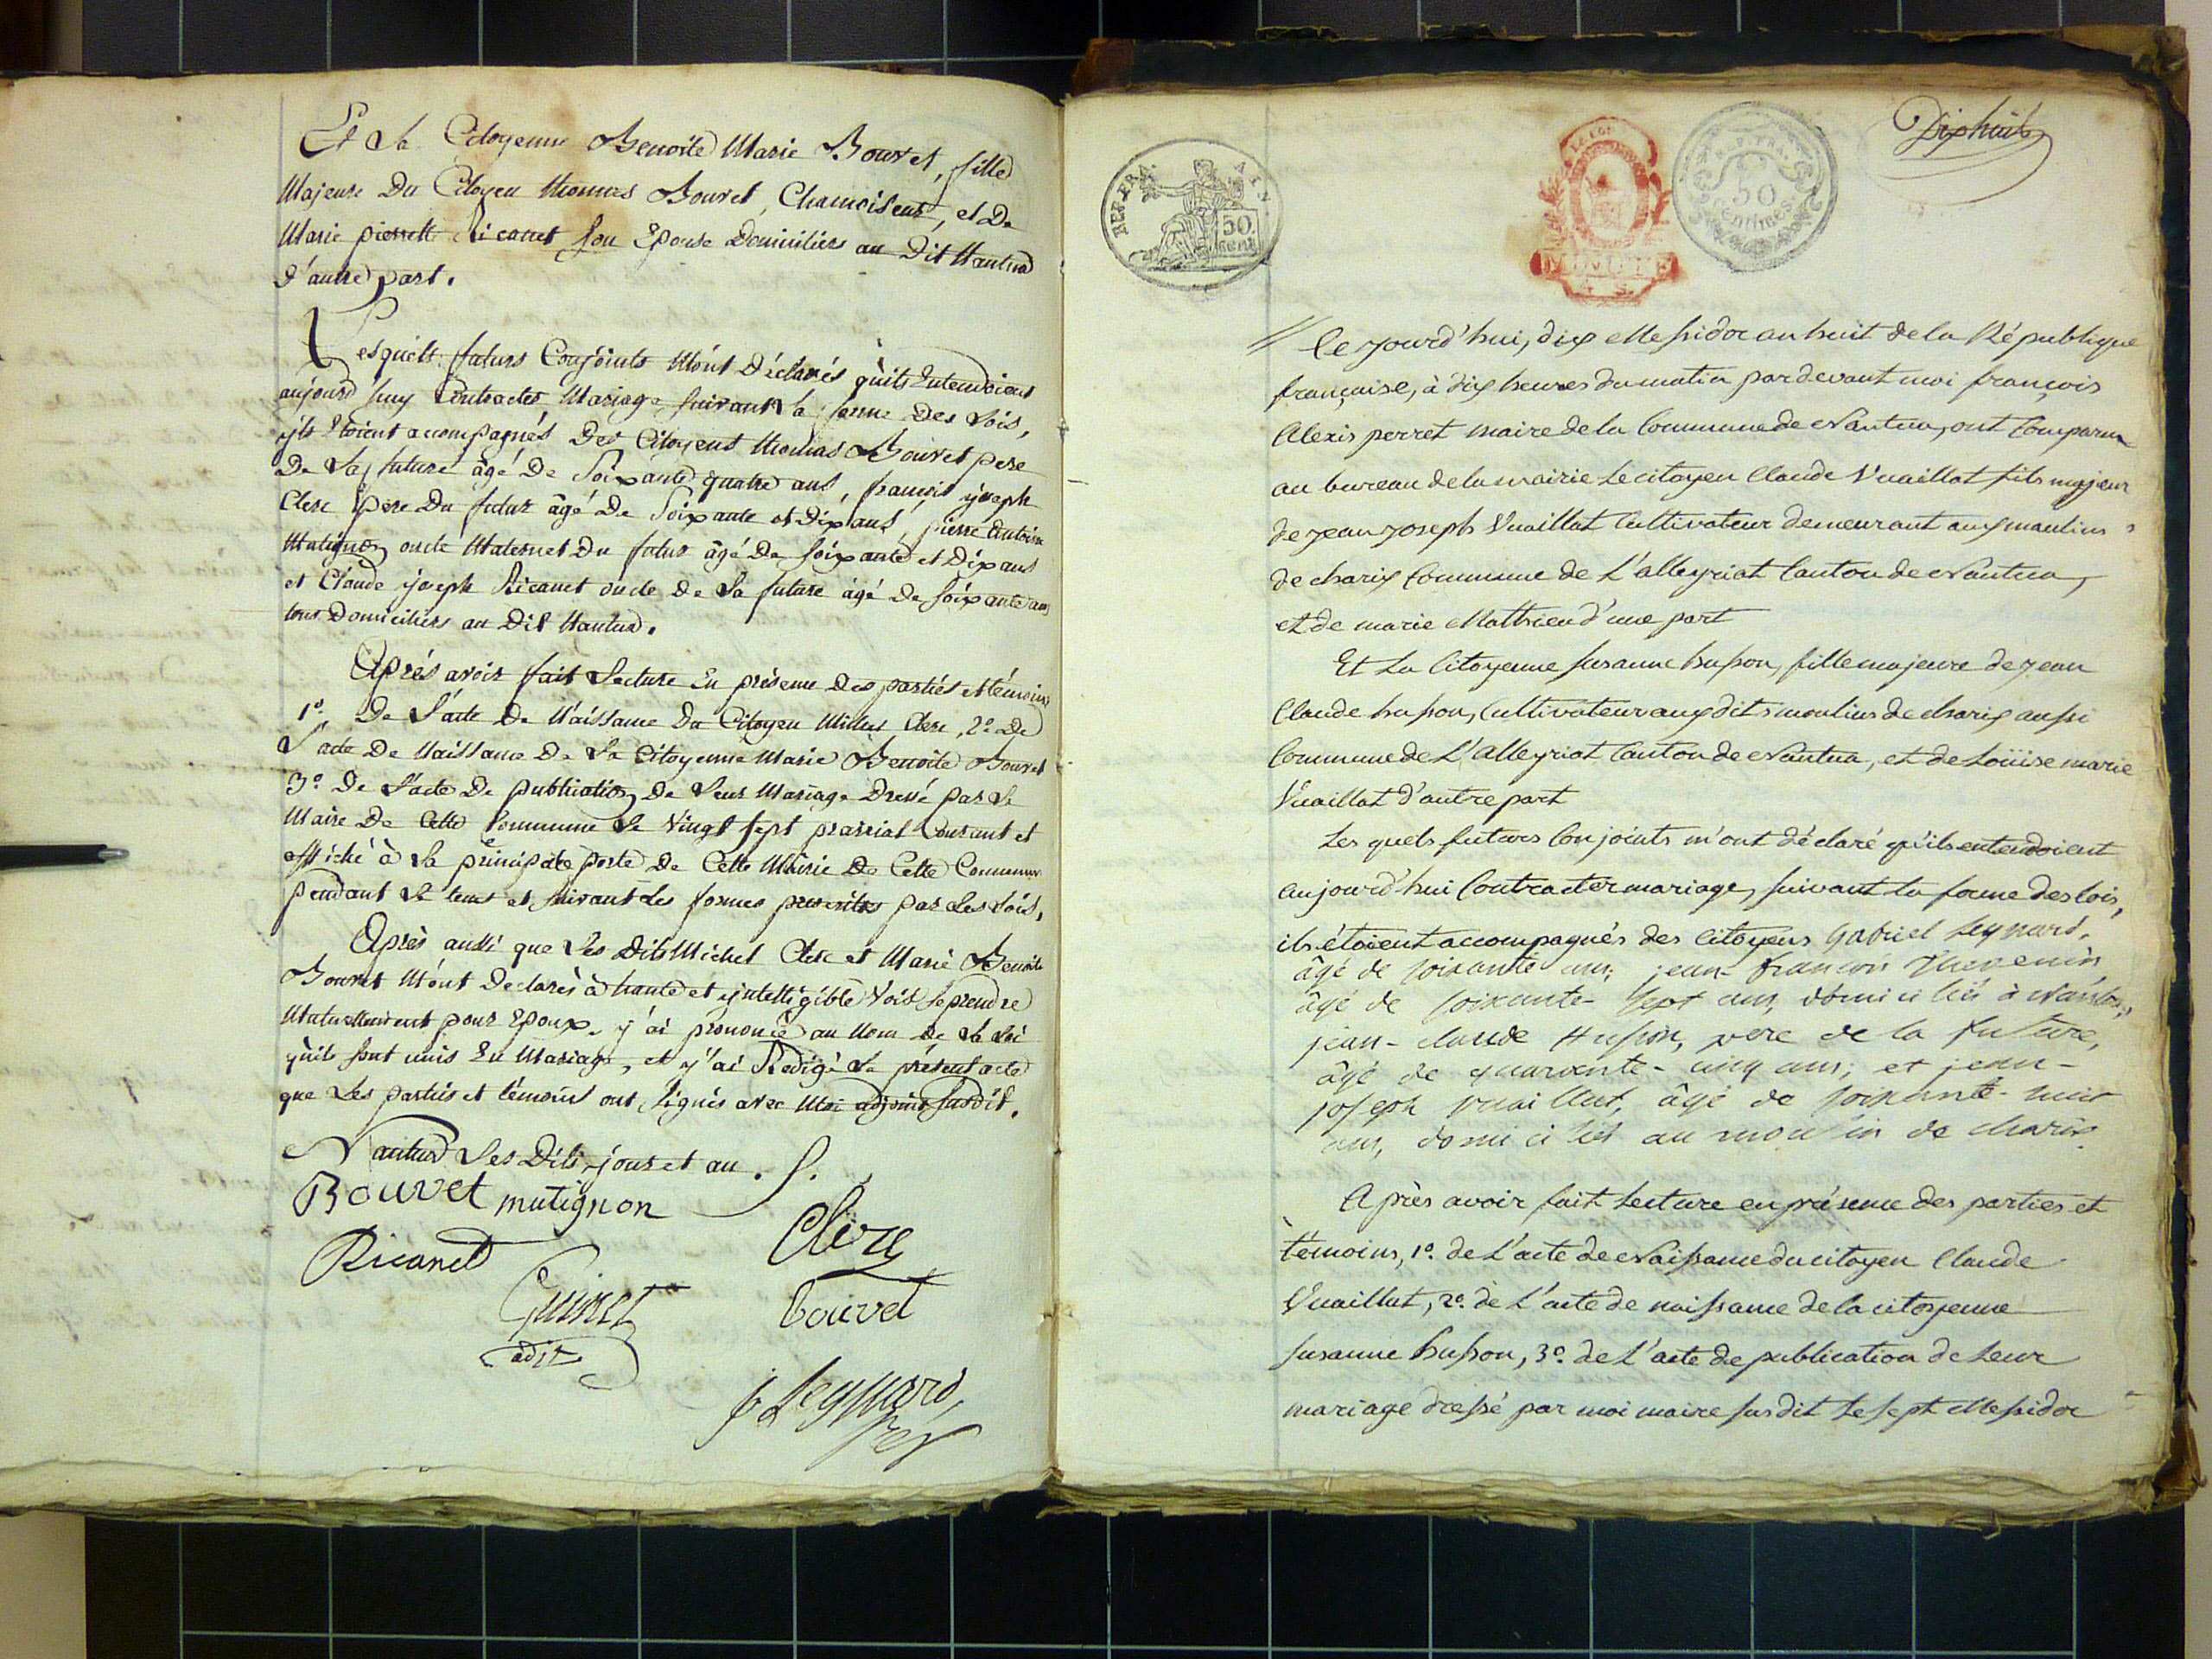 Et La Citoyenne Benoite Marie Bouvet, fille
Majeure Du Citoyen thomas Bouvet, Chamoiseur, et De
Marie pierrette Ricanet son Epouse Domiciliés au Dit Nantua
d'autre part.
Lesquels futurs Conjoints M'ont Déclarés qu'ils Entendoient
aujourd'huy Contracter Mariage, suivant la forme Des Lois,
ils Etoient accompagnés Des Citoyens thomas Bouvet pere
De La future âgé De Soixante quatre ans, françois joseph
Clerc Père Du futur âgé De Soixante et Dix ans, pierre antoine
Mutignon oncle Maternel Du futur âgé De soixante et Dix ans
et Claude joseph Ricanet oncle De La future âgé De soixante ans
tous Domiciliés au Dit Nantua.
Après avoir fait Lecture En présence Des parties et témoins
1º. De L'acte De Naissance Du Citoyen Michel Clerc, 2º De
L'acte De Naissance De La Citoyenne Marie Benoite Bouvet
3º De L'acte De publication De Leur Mariage Dressé par Le
Maire De Cette Commune Le Vingt sept prairial Courant et
affiché à La principale porte De Cette Mairie De Cette Commune
pendant Le tems et suivant Les formes prescrites par Les Lois,
Après aussi que Les Dits Michel Clerc et Marie Benoite
Bouvet M'ont Declarés à haute et yntelligible Voix se prendre
Mutuellement pour Epoux. j'ai prononcé au Nom De La Loi
qu'ils sont unis En Mariage, et j'ai Redigé Le présent acte
que Les parties et témoins ont signés avec Moi adjoint susdit.
Nantua Les Dits jour et an.
Bouvet mutignon
Clerc
Ricanet
Guinet
adjt
bouvet
Leyssard
Dix huit
REP. FRA. AIN.
50. cent
50 centimes.
MINUTE
// Ce jourd'hui, dix Messidor an huit de la République
française, à dix heures du matin pardevant moi françois
Alexis perret maire de la Commune de Nantua, ont Comparu
au bureau de la mairie Le citoyen Claude Vuaillat fils majeur
de jean joseph Vuaillat Cultivateur demeurant aux moulins
de charix Commune de L'alleyriat Canton de Nantua,
et de marie Mathieu d'une part
Et La Citoyenne Susanne husson, fille majeure de jean
Claude husson, Cultivateur aux dits moulins de charix aussi
Commune de L'alleyriat Canton de Nantua, et de Loüise marie
Vuaillat d'autre part
Les quels futurs Conjoints m'ont déclaré qu'ils entendoient
aujourd'hui Contracter mariage, suivant la forme des lois,
ils étoient accompagnés des citoyens Gabriel Leyssard,
âgé de soixante ans, jean-françois thevenin
âgé de soixante-sept ans, domiciliés à Nantua,
jean-claude Husson, pere de la future,
âgé de quarante-cinq ans; et jean-
joseph Vuaillat, âgé de soixante-huit
ans, domiciliés au moulin de charix.
Après avoir fait Lecture en présence des parties et
témoins, 1º. de L'acte de Naissance du citoyen Claude
Vuaillat, 2º. de L'acte de naissance de la citoyenne
Susanne husson, 3º. de L'acte de publication de Leur
mariage dressé par moi maire susdit Le sept Messidor